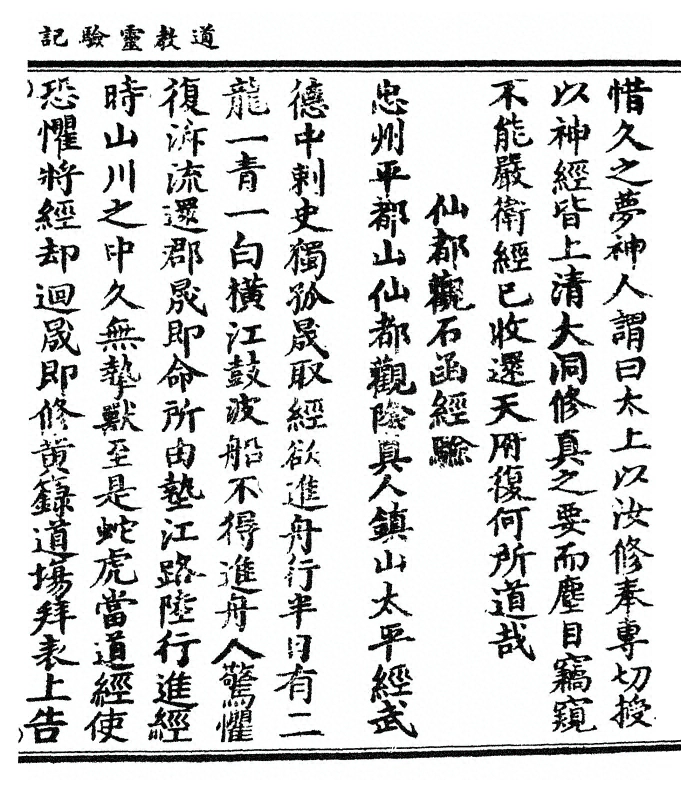 道教靈驗記
惜久之夢神人謂曰太上以汝修奉專切授
以神經皆上清大洞修真之要而塵目竊窺
不能嚴衛經已收還天府復何所道哉
仙都觀石函經驗
忠州平都山仙都觀陰真人鎮山太平經武
德中刺史獨孤晟取經欲進舟行半日有二
龍一青一白橫江鼓波船不得進舟人驚懼
復泝流還郡晟即命所由墊江路陸行進經
時山川之中久無摯獸至是蛇虎當道經使
恐懼將經却迴晟即修黃籙道場拜表上告